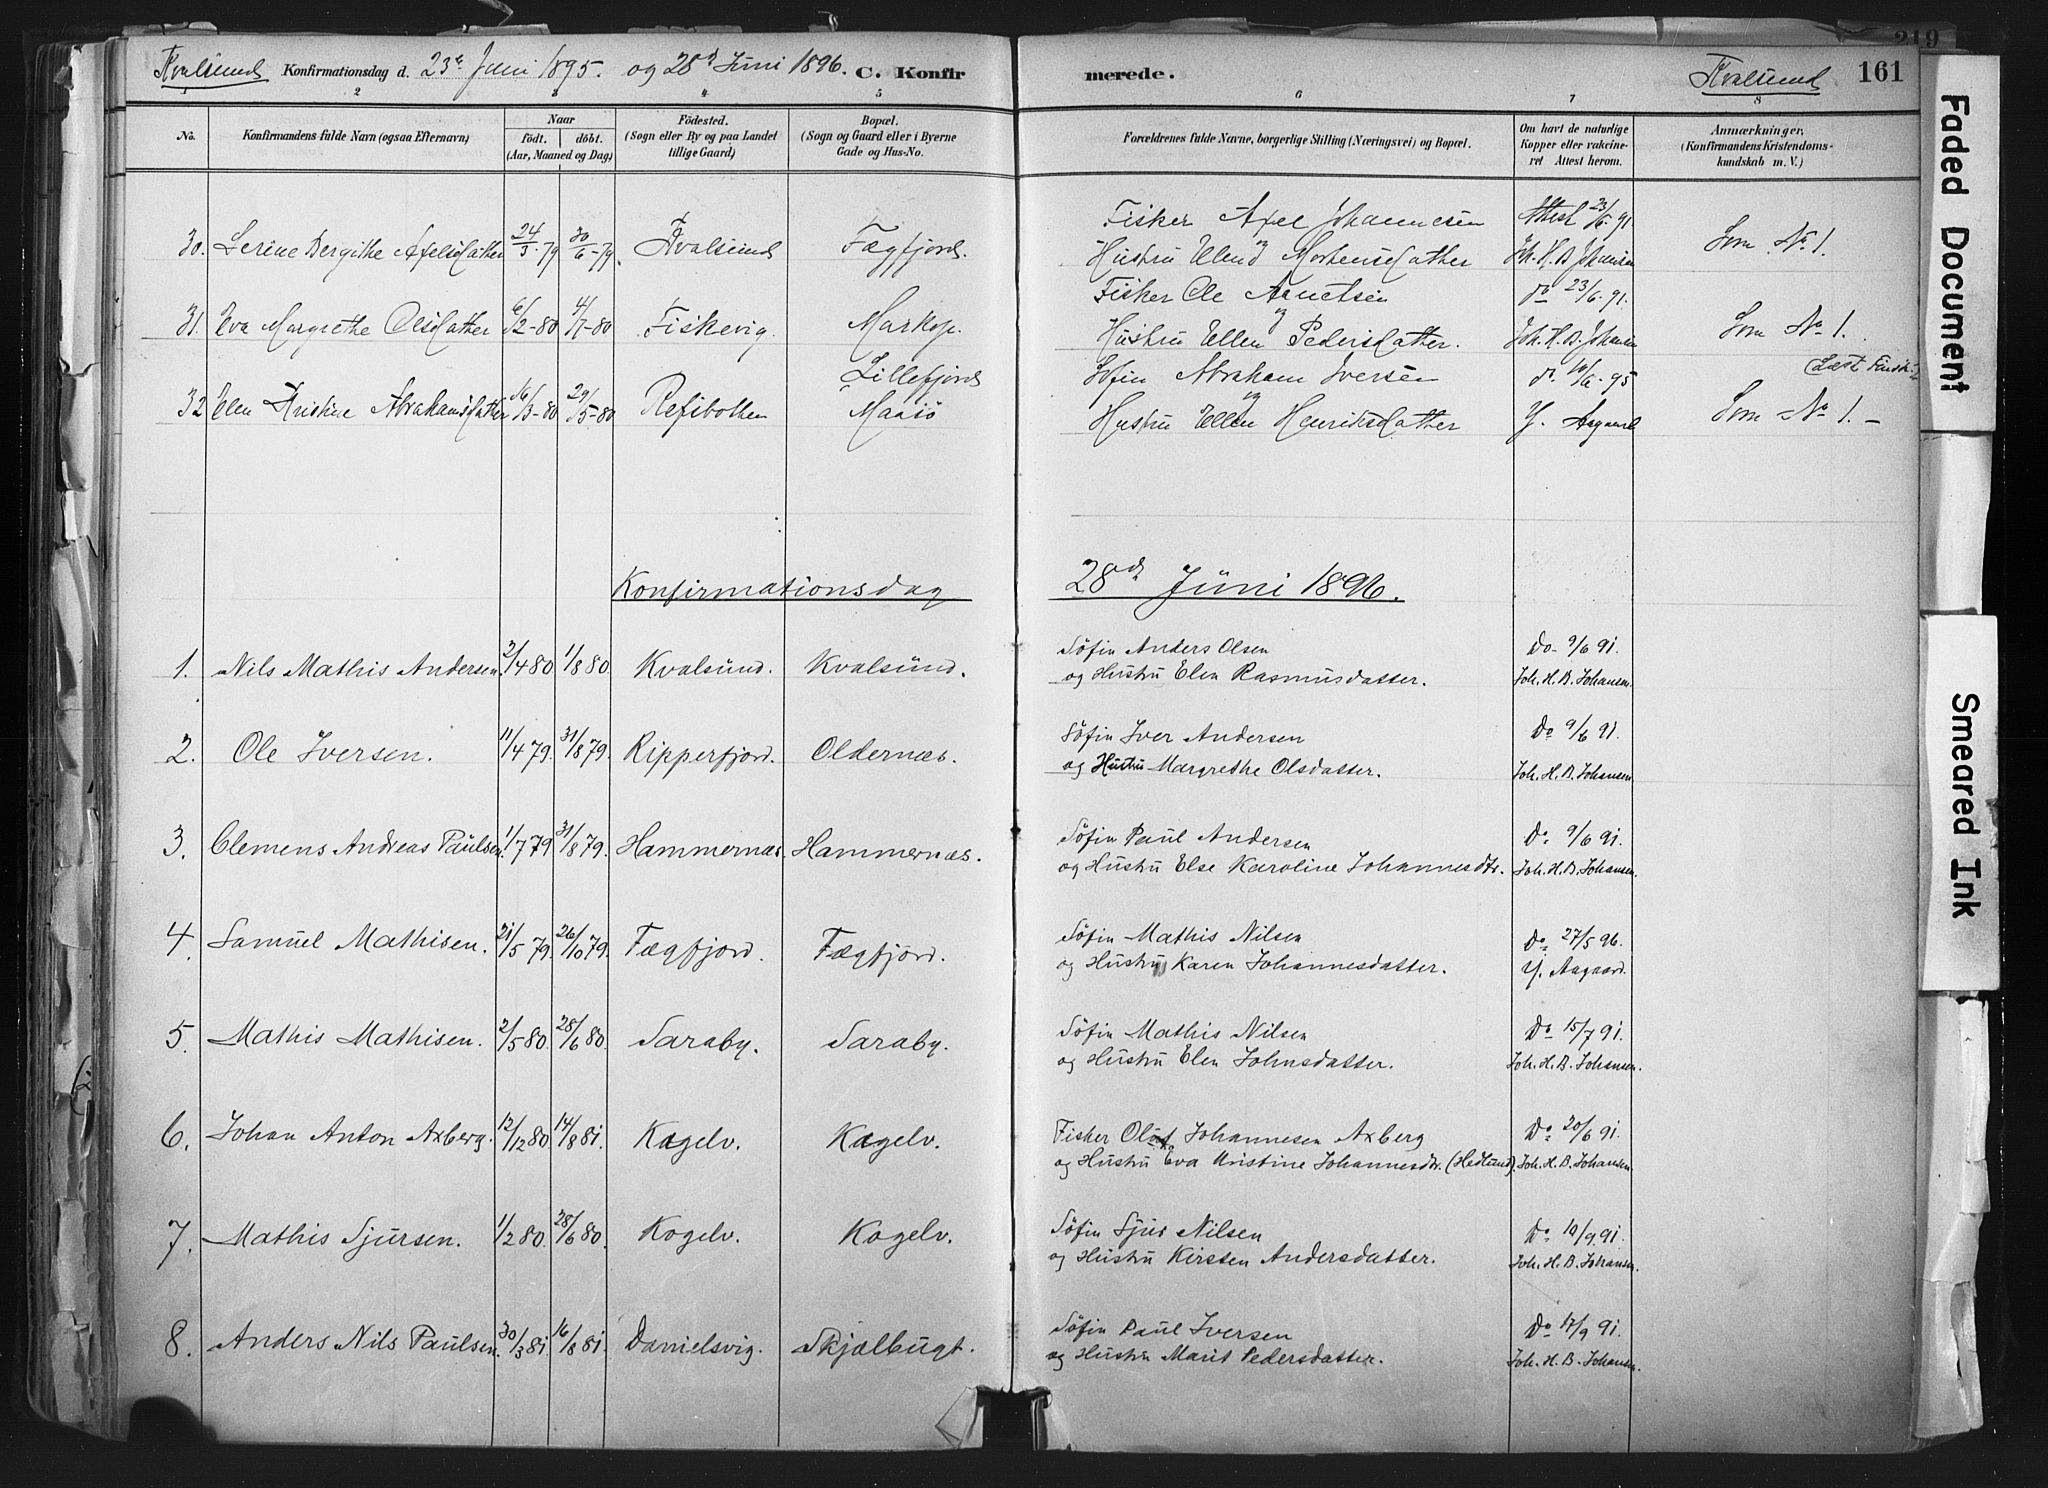 219
Kvalsund Konfirmationsdag d. 23de Juni 1895. og 28d Juni 1896. C. Konfirmerede. Kvalsund 161
1 2 3 4 5 6 7 8
No. Konfirmandens fulde Navn (ogsaa Efternavn) Naar födt. döbt. (Aar, Maaned og Dag) Födested. (Sogn eller By og paa Landet tillige Gaard) Bopæl. (Sogn og Gaard eller i Byerne Gade og Hus-No. Forældrenes fulde Navne, borgerlige Stilling (Næringsvei) og Bopæl. Om havt de naturlige Kopper eller vakcineret Attest herom. Anmærkninger. (Konfirmandens Kristendomskundskab m. V.)
30. Serine Bergithe Axelsdatter 24/3-79 30/6-79. Kvalsund Fægfjord. Fisker Axel Johannesen Attest 23/6.91. Som No 1.
og Hustru Elen Mortensdatter Joh. H. B. Johansen
31. Eva Margrethe Olsdatter 6/2-80 4/7-80 Fiskevig. Markop. Fisker Ole do 23/6.91. Som No 1.
og Hustru Ellen Pedersdatter. Joh. H. B. Johansen
32 Elen Kristine Abrahamsdatter 16/3-80 29/5-80 Refsbotten Lillefjord Maasö Söfin Abraham Iversen do. 10/6-95 (Læst Finsk.) Som No 1. –
og Hustru Ellen Henriksdatter Y. Aagaard
Konfirmationsdag 28d Juni 1896.
1. Nils Mathis Andersen. 2/4 80 1/8 80. Kvalsund. Kvalsund. Söfin Anders Olsen Do- 9/6 91.
og Hustru Elen Rasmusdatter. Joh. H. B. Johansen.
2. Ole Iversen. 11/4 79. 31/8 79. Ripperfjord. Oldernæs. Söfin Iver Andersen Do 9/6 91.
og Hustru Margrethe Olsdatter. Joh. H. B. Johansen
3. Clemens Andreas Paulsen. 1/7 79. 31/8 79. Hammernæs. Hammernæs. Söfin Paul Andersen Do. 9/6 91.
og Hustru Else Karoline Johannesdtr. Joh. H. B. Johansen.
4. Samuel Mathisen. 21/5 79. 26/10 79. Fægfjord. Fægfjord. Söfin Mathis Nilsen Do. 27/5 96.
og Hustru Karen Johannesdatter. Y. Aagaard.
5. Mathis Mathisen. 2/5 80. 28/6 80. Saraby. Saraby. Söfin Mathis Nilsen Do 15/7 91.
og Hustru Elen Johnsdatter. Joh. H. B. Johansen.
6. Johan Anton Axberg. 12/12 80. 14/8 81. Kogelv. Kogelv. Fisker Olaf Johannesen Axberg Do. 20/6 91.
og Hustru Eva Kristine Johannesdtr. (Hedlund). Joh. H. B. Johansen.
7. Mathis Sjursen. 1/2 80. 28/6 80. Kogelv. Kogelv. Söfin Sjur Nilsen Do. 10/9.91.
og Hustru Kirsten Andersdatter. Joh. H. B. Johansen.
8. Anders Nils Paulsen. 30/3 81. 16/8 81. Danielsvig. Skjælbugt. Söfin Paul Iversen Do 17/9 91.
og Hustru Marit Pedersdatter. Joh. H. B. Johansen.
Faded Document
Smeared Ink